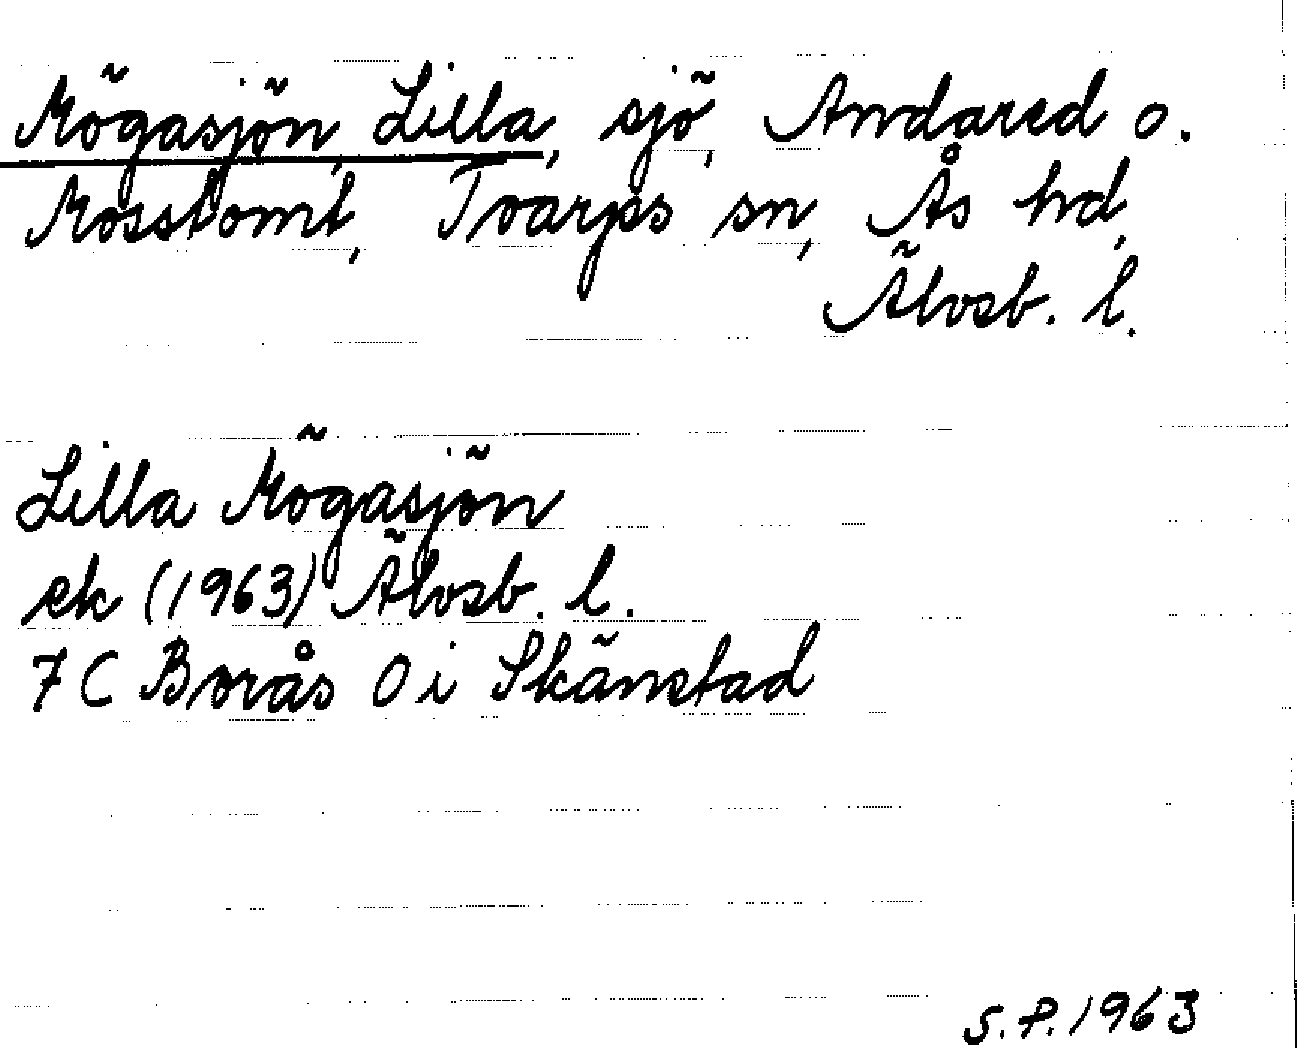 Mögasjön, Lilla, sjö, Andared o.
Mosstomt, Tvarps sn, Ås hd,
Älvsb. l.
Lilla Mögasjön
ek (1963) Älvsb. l.
7 C Borås 0 i Skänstad
S.P. 1963